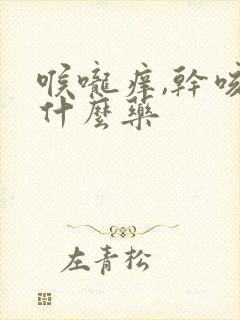 喉嚨痒,幹咳
什麼藥
左青松